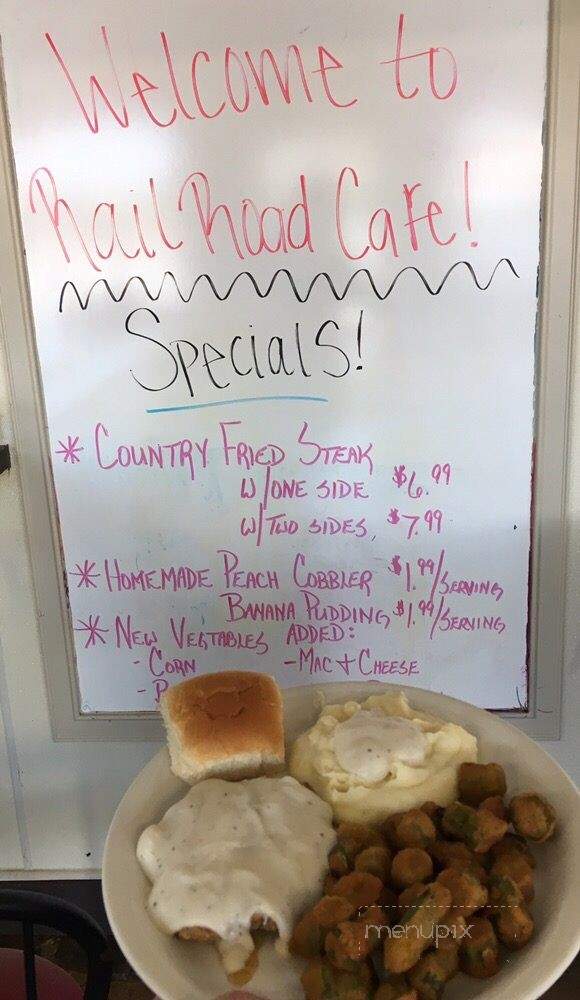 Welcome to
RailRoad Cafe!
Specials!
* COUNTRY FRIED STEAK
W/ONE SIDE $6.99
W/TWO SIDES, $7.99
* HOMEMADE PEACH COBBLER $1.99/SERVING
BANANA PUDDING $1.99/SERVING
* NEW VEGTABLES ADDED:
- CORN - MAC + CHEESE
menupix